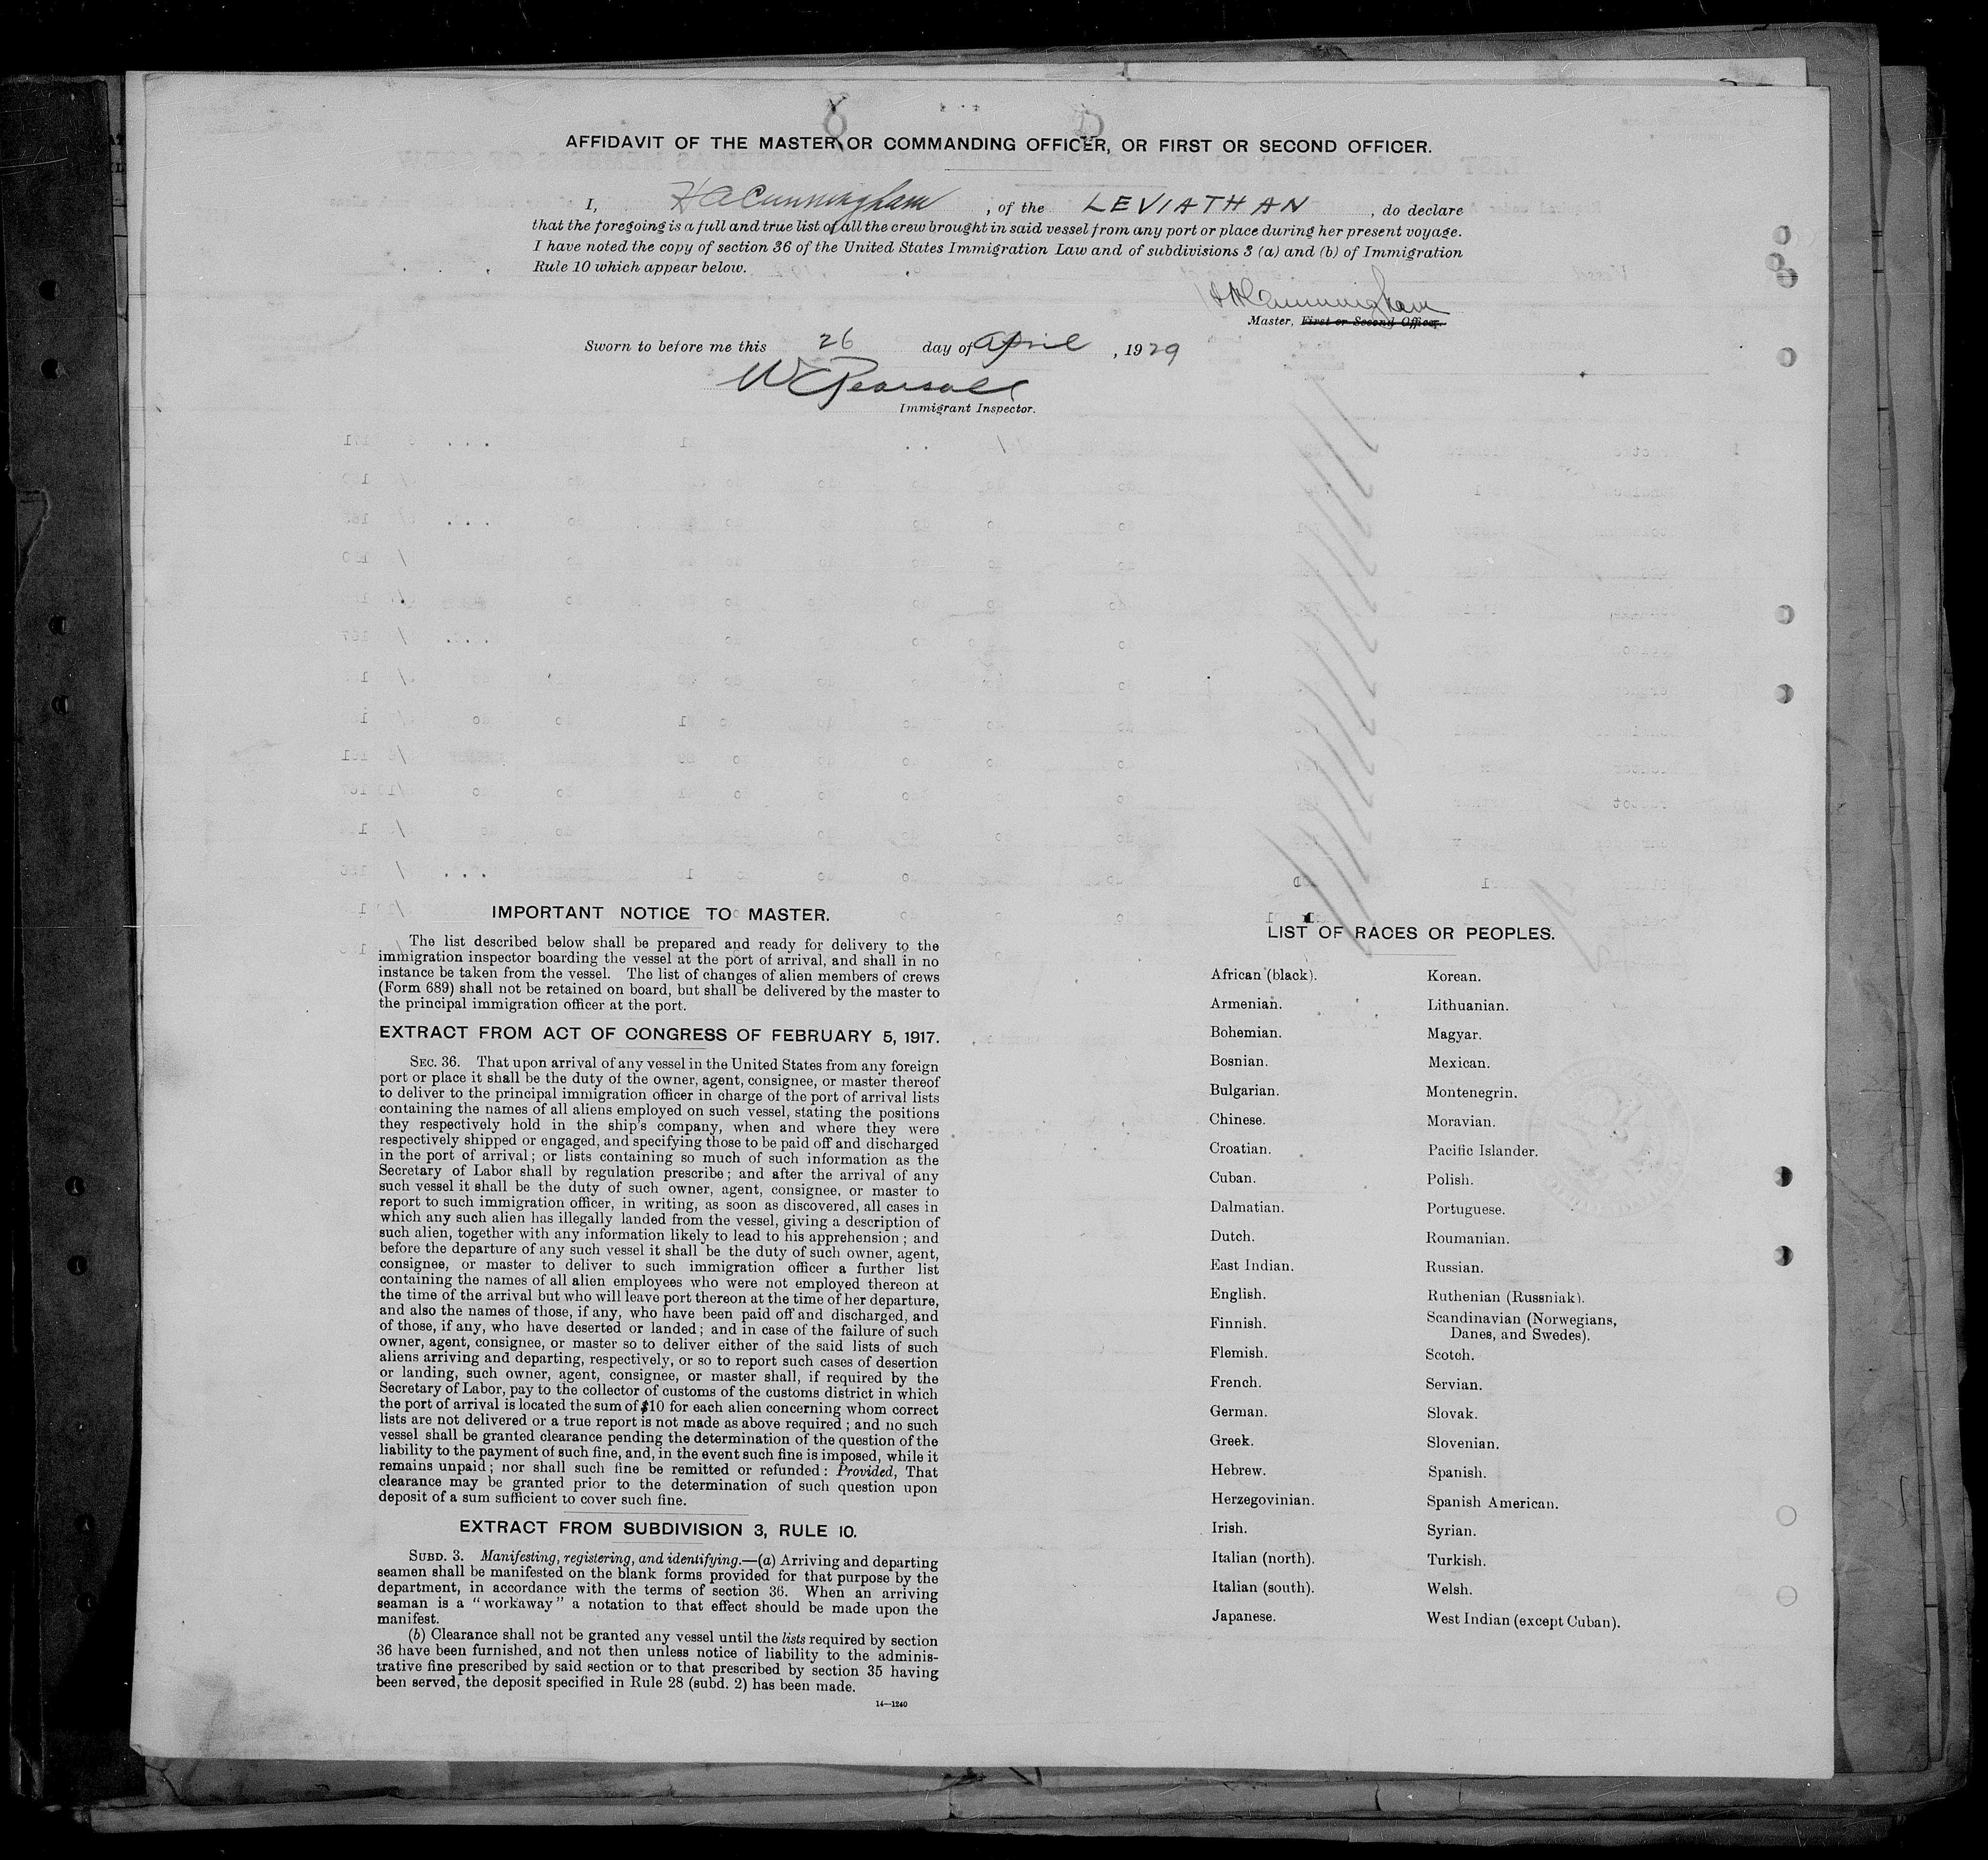 AFFIDAVIT OF THE MASTER OR COMMANDING OFFICER, OR FIRST OR SECOND OFFICER.
I, H A Cunningham, of the LEVIATHAN, do declare
that the foregoing is a full and true list of all the crew brought in said vessel from any port or place during her present voyage.
I have noted the copy of section 36 of the United States Immigration Law and of subdivisions 3 (a) and (b) of Immigration
Rule 10 which appear below.
H A Cunningham
Master, First or Second Officer.
Sworn to before me this 26 day of April, 1929
W C Pearsall
Immigrant Inspector.
IMPORTANT NOTICE TO MASTER.
The list described below shall be prepared and ready for delivery to the
immigration inspector boarding the vessel at the port of arrival, and shall in no
instance be taken from the vessel. The list of changes of alien members of crews
(Form 689) shall not be retained on board, but shall be delivered by the master to
the principal immigration officer at the port.
EXTRACT FROM ACT OF CONGRESS OF FEBRUARY 5, 1917.
SEC. 36. That upon arrival of any vessel in the United States from any foreign
port or place it shall be the duty of the owner, agent, consignee, or master thereof
to deliver to the principal immigration officer in charge of the port of arrival lists
containing the names of all aliens employed on such vessel, stating the positions
they respectively hold in the ship's company, when and where they were
respectively shipped or engaged, and specifying those to be paid off and discharged
in the port of arrival; or lists containing so much of such information as the
Secretary of Labor shall by regulation prescribe; and after the arrival of any
such vessel it shall be the duty of such owner, agent, consignee, or master to
report to such immigration officer, in writing, as soon as discovered, all cases in
which any such alien has illegally landed from the vessel, giving a description of
such alien, together with any information likely to lead to his apprehension; and
before the departure of any such vessel it shall be the duty of such owner, agent,
consignee, or master to deliver to such immigration officer a further list
containing the names of all alien employees who were not employed thereon at
the time of the arrival but who will leave port thereon at the time of her departure,
and also the names of those, if any, who have been paid off and discharged, and
of those, if any, who have deserted or landed; and in case of the failure of such
owner, agent, consignee, or master so to deliver either of the said lists of such
aliens arriving and departing, respectively, or so to report such cases of desertion
or landing, such owner, agent, consignee, or master shall, if required by the
Secretary of Labor, pay to the collector of customs of the customs district in which
the port of arrival is located the sum of $10 for each alien concerning whom correct
lists are not delivered or a true report is not made as above required; and no such
vessel shall be granted clearance pending the determination of the question of the
liability to the payment of such fine, and, in the event such fine is imposed, while it
remains unpaid; nor shall such fine be remitted or refunded: Provided, That
clearance may be granted prior to the determination of such question upon
deposit of a sum sufficient to cover such fine.
EXTRACT FROM SUBDIVISION 3, RULE 10.
SUBD. 3. Manifesting, registering, and identifying.—(a) Arriving and departing
seamen shall be manifested on the blank forms provided for that purpose by the
department, in accordance with the terms of section 36. When an arriving
seaman is a "workaway" a notation to that effect should be made upon the
manifest.
(b) Clearance shall not be granted any vessel until the lists required by section
36 have been furnished, and not then unless notice of liability to the adminis-
trative fine prescribed by said section or to that prescribed by section 35 having
been served, the deposit specified in Rule 28 (subd. 2) has been made.
14—1240
LIST OF RACES OR PEOPLES.
African (black).
Armenian.
Bohemian.
Bosnian.
Bulgarian.
Chinese.
Croatian.
Cuban.
Dalmatian.
Dutch.
East Indian.
English.
Finnish.
Flemish.
French.
German.
Greek.
Hebrew.
Herzegovinian.
Irish.
Italian (north).
Italian (south).
Japanese.
Korean.
Lithuanian.
Magyar.
Mexican.
Montenegrin.
Moravian.
Pacific Islander.
Polish.
Portuguese.
Roumanian.
Russian.
Ruthenian (Russniak).
Scandinavian (Norwegians,
Danes, and Swedes).
Scotch.
Servian.
Slovak.
Slovenian.
Spanish.
Spanish American.
Syrian.
Turkish.
Welsh.
West Indian (except Cuban).